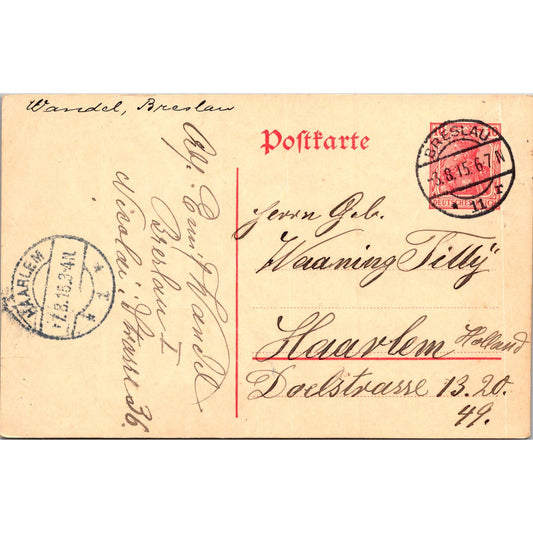 Wandel, Breslau
Postkarte
BRESLAU
-3.8.15.6-7N
* 11 r
DEUTSCHES REICH
Herrn Geb.
Waaning Tillÿ
Haarlem Holland
Doelstrasse 13.20.
49.
Abs. Emil Wandel
Breslau I
Nicolai Strasse 36.
HAARLEM
8.15.3-4N